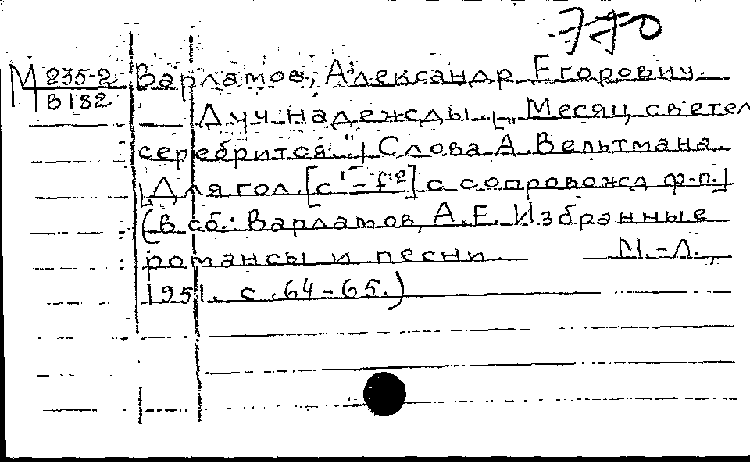 770
М 235-2 Варламов, Александр Егорович.
В 182
Луч надежды. „Месяц светел
серебрится..." Слова А. Вельтмана.
[Для гол. [c¹-f²] с сопровожд. ф.-п.]
(В сб.: Варламов, А.Е. Избранные
романсы и песни. М.-Л.,
1951. с. 64-65.)